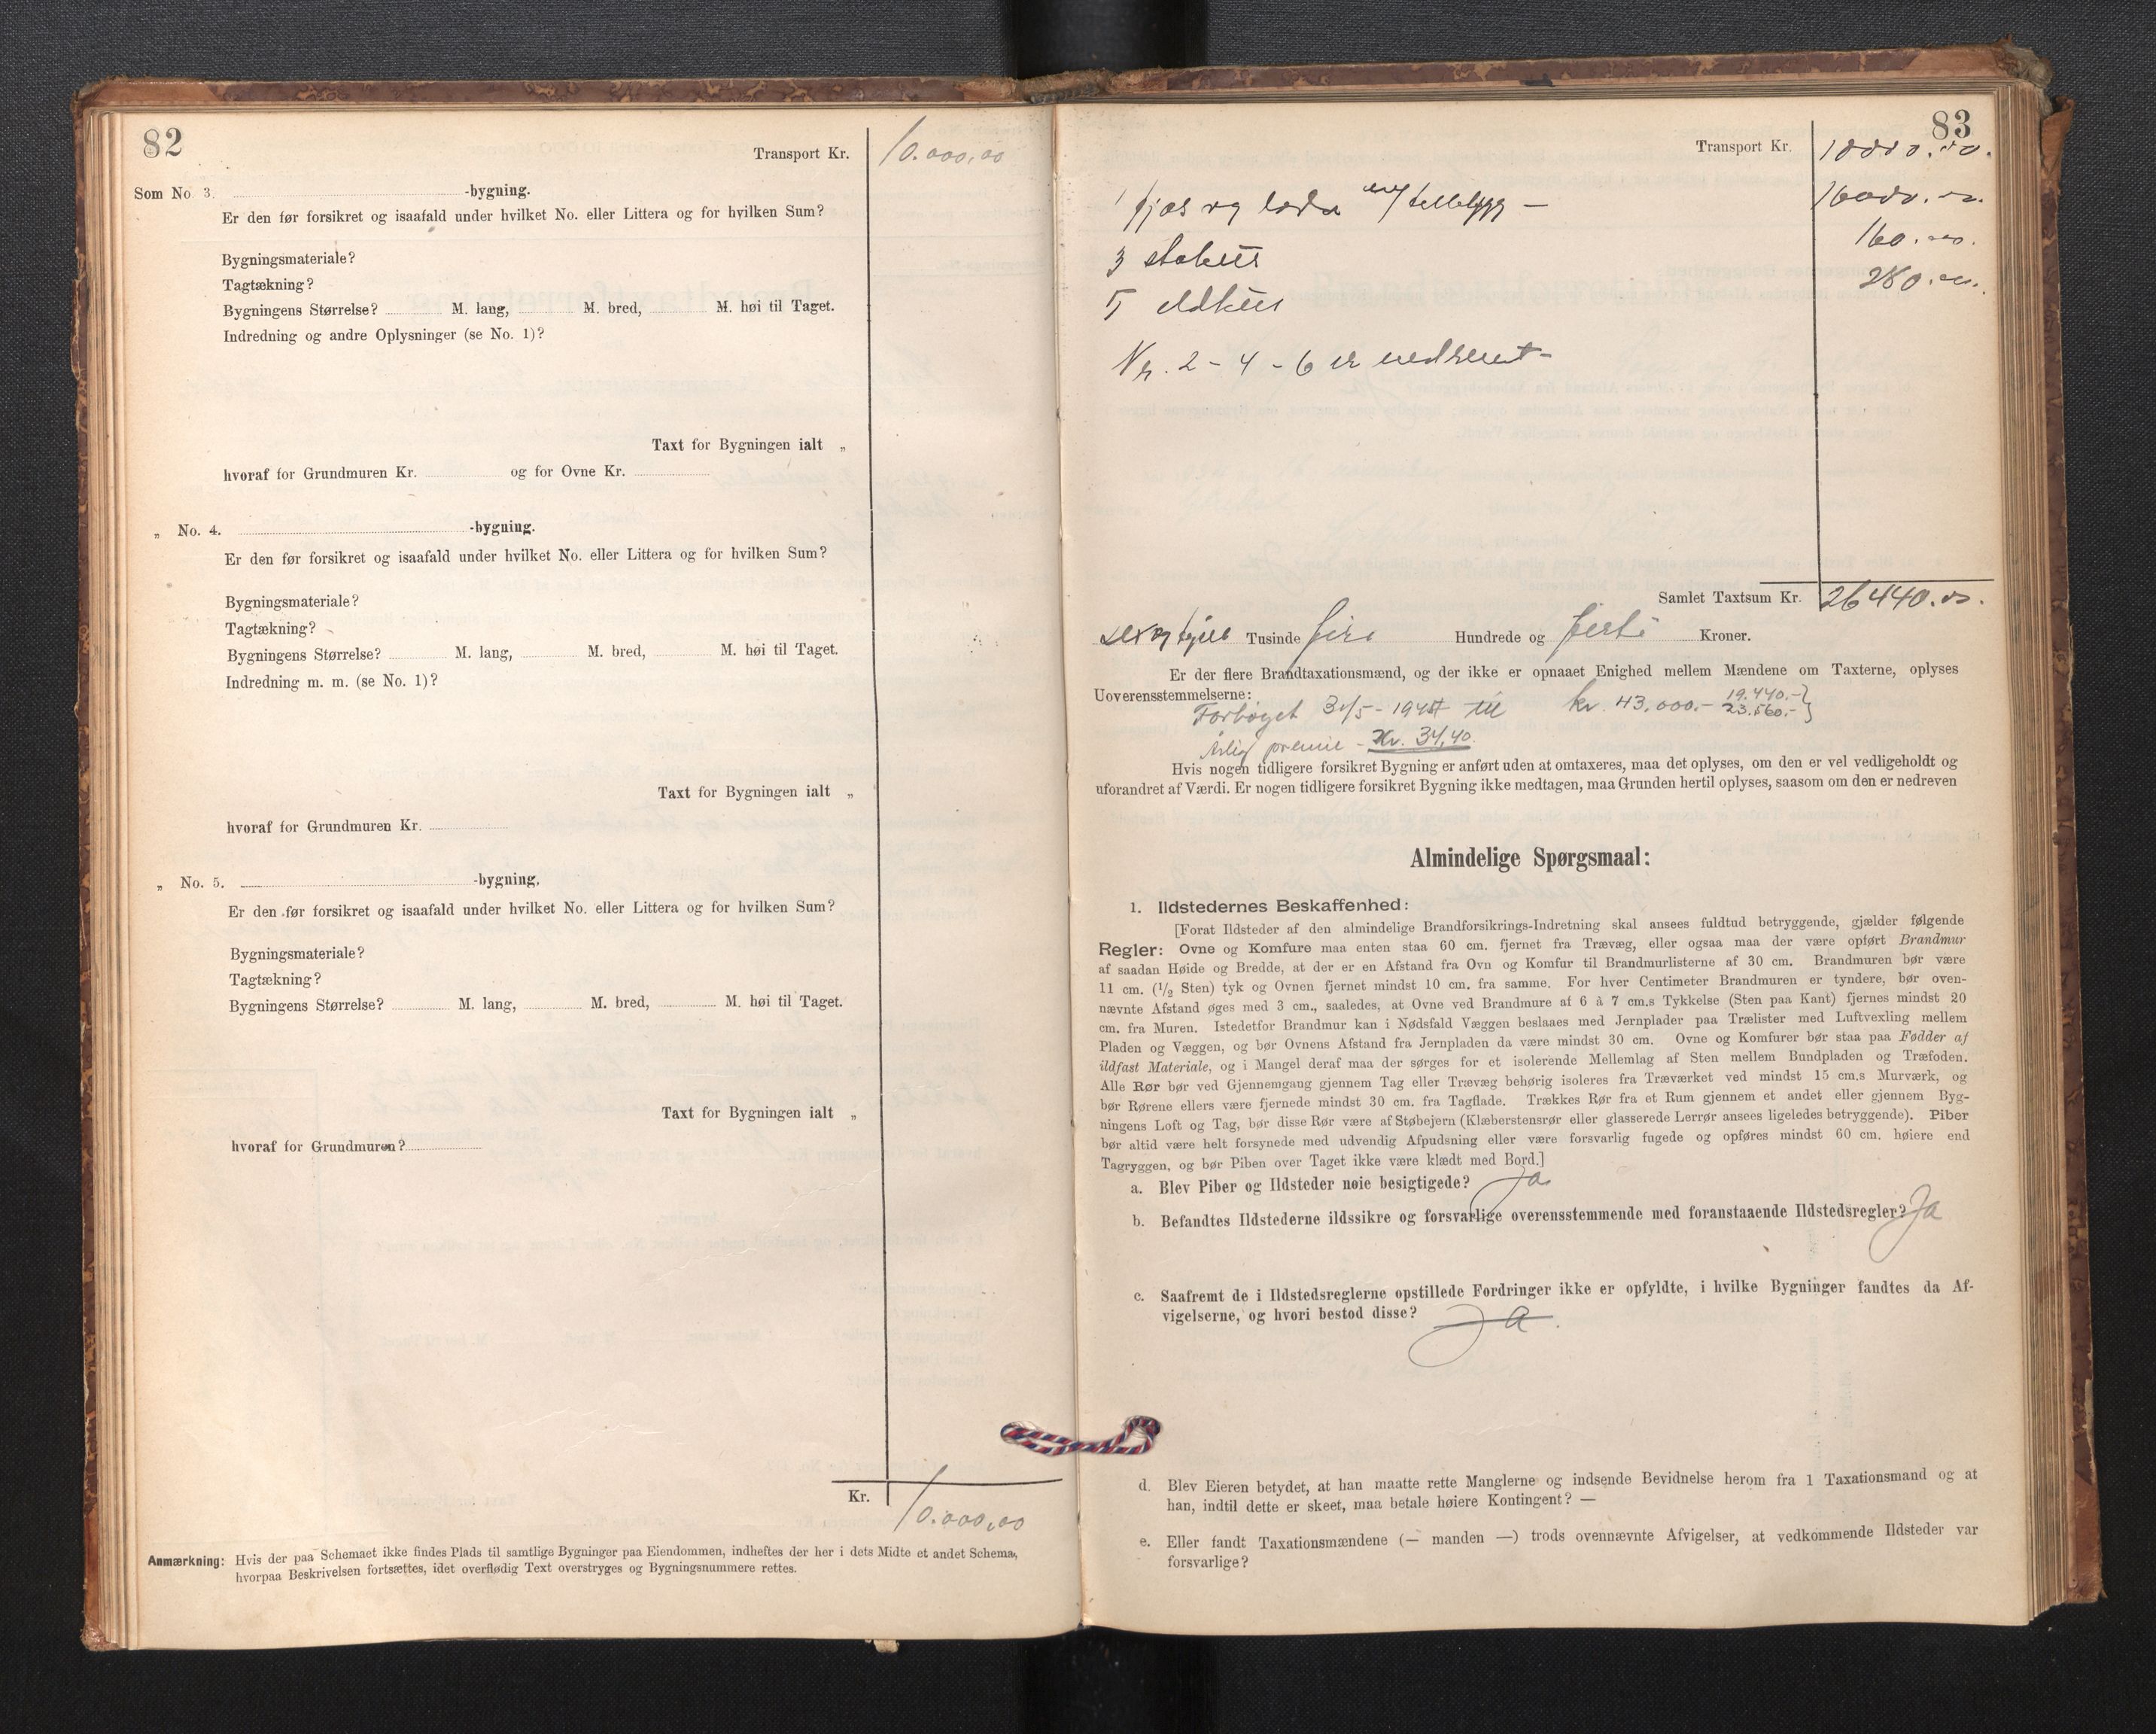 82
Transport Kr. 10.000,00
Som No. 3. -bygning.
Er den før forsikret og isaafald under hvilket No. eller Littera og for hvilken Sum?
Bygningsmateriale?
Tagtækning?
Bygningens Størrelse? M. lang, M. bred, M. høi til Taget.
Indredning og andre Oplysninger (se No. 1)?
Taxt for Bygningen ialt „
hvoraf for Grundmuren Kr. og for Ovne Kr.
„ No. 4. -bygning.
Er den før forsikret og isaafald under hvilket No. eller Littera og for hvilken Sum?
Bygningsmateriale?
Tagtækning?
Bygningens Størrelse? M. lang, M. bred, M. høi til Taget.
Indredning m. m. (se No. 1)?
Taxt for Bygningen ialt „
hvoraf for Grundmuren Kr.
„ No. 5. -bygning.
Er den før forsikret og isaafald under hvilket No. eller Littera og for hvilken Sum?
Bygningsmateriale?
Tagtækning?
Bygningens Størrelse? M. lang, M. bred, M. høi til Taget.
Taxt for Bygningen ialt „
hvoraf for Grundmuren?
Kr. 10.000,00
Anmærkning: Hvis der paa Schemaet ikke findes Plads til samtlige Bygninger paa Eiendommen, indheftes der her i dets Midte et andet Schema,
hvorpaa Beskrivelsen fortsættes, idet overflødig Text overstryges og Bygningsnummere rettes.
83
Transport Kr. 10000.00.
1 fjøs og løda m/ tillebygg – 16000.00.
3 stabeis 160.00.
5 eldhus 280.00.
Nr. 2 - 4 - 6 er nedrevet -
Samlet Taxtsum Kr. 26440.00.
sexogtjue Tusinde fire Hundrede og førti Kroner.
Er der flere Brandtaxationsmænd, og der ikke er opnaaet Enighed mellem Mændene om Taxterne, oplyses
Uoverensstemmelserne:
19.440.-}
Forhøyet 31/5 - 194 til kr. 43.000.- 23.560.-}
Årlig premie - Kr. 34,40.
Hvis nogen tidligere forsikret Bygning er anført uden at omtaxeres, maa det oplyses, om den er vel vedligeholdt og
uforandret af Værdi. Er nogen tidligere forsikret Bygning ikke medtagen, maa Grunden hertil oplyses, saasom om den er nedreven
Almindelige Spørgsmaal:
1. Ildstedernes Beskaffenhed:
[Forat Ildsteder af den almindelige Brandforsikrings-Indretning skal ansees fuldtud betryggende, gjælder følgende
Regler: Ovne og Komfure maa enten staa 60 cm. fjernet fra Trævæg, eller ogsaa maa der være opført Brandmur
af saadan Høide og Bredde, at der er en Afstand fra Ovn og Komfur til Brandmurlisterne af 30 cm. Brandmuren bør være
11 cm. (1/2 Sten) tyk og Ovnen fjernet mindst 10 cm. fra samme. For hver Centimeter Brandmuren er tyndere, bør oven-
nævnte Afstand øges med 3 cm., saaledes, at Ovne ved Brandmure af 6 à 7 cm.s Tykkelse (Sten paa Kant) fjernes mindst 20
cm. fra Muren. Istedetfor Brandmur kan i Nødsfald Væggen beslaaes med Jernplader paa Trælister med Luftvexling mellem
Pladen og Væggen, og bør Ovnens Afstand fra Jernpladen da være mindst 30 cm. Ovne og Komfurer bør staa paa Fødder af
ildfast Materiale, og i Mangel deraf maa der sørges for et isolerende Mellemlag af Sten mellem Bundpladen og Træfoden.
Alle Rør bør ved Gjennemgang gjennem Tag eller Trævæg behørig isoleres fra Træværket ved mindst 15 cm.s Murværk, og
bør Rørene ellers være fjernede mindst 30 cm. fra Tagflade. Trækkes Rør fra et Rum gjennem et andet eller gjennem Byg-
ningens Loft og Tag, bør disse Rør være af Støbejern (Klæberstensrør eller glasserede Lerrør ansees ligeledes betryggende). Piber
bør altid være helt forsynede med udvendig Afpudsning eller være forsvarlig fugede og opføres mindst 60 cm. høiere end
Tagryggen, og bør Piben over Taget ikke være klædt med Bord.]
a. Blev Piber og Ildsteder nøie besigtigede? Ja
b. Befandtes Ildstederne ildssikre og forsvarlige overensstemmende med foranstaaende Ildstedsregler? Ja
c. Saafremt de i Ildstedsreglerne opstillede Fordringer ikke er opfyldte, i hvilke Bygninger fandtes da Af-
vigelserne, og hvori bestod disse? Ja.
d. Blev Eieren betydet, at han maatte rette Manglerne og indsende Bevidnelse herom fra 1 Taxationsmand og at
han, indtil dette er skeet, maa betale høiere Kontingent? —
e. Eller fandt Taxationsmændene (— manden —) trods ovennævnte Afvigelser, at vedkommende Ildsteder var
forsvarlige?